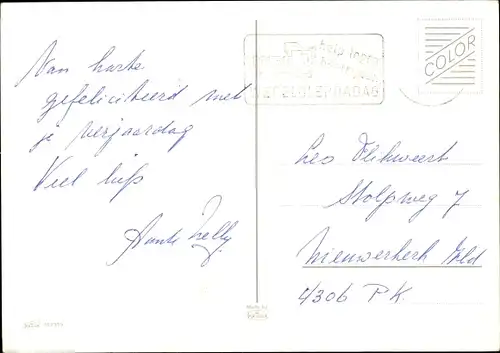 Van harte
gefeliciteerd met
je verjaardag
Veel liefs
Nelly
COLOR
Leo Flikweert
Stolpweg 7
Nieuwerkerk
4306 PK.